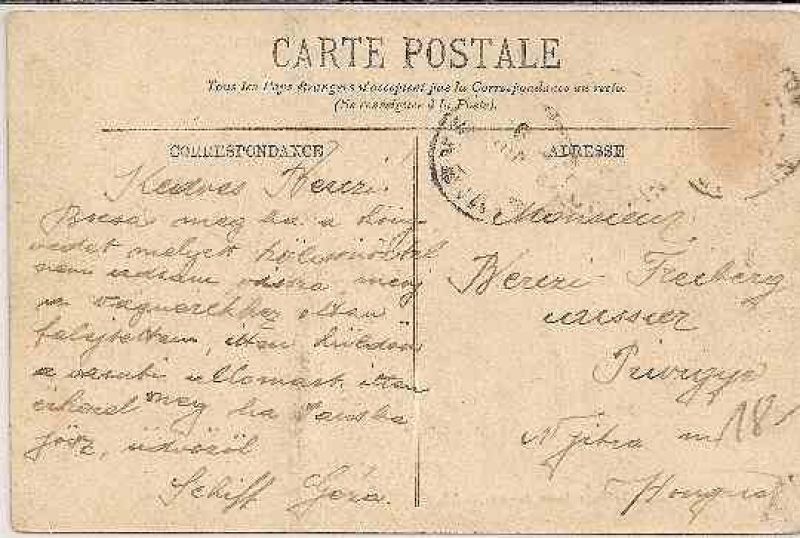 CARTE POSTALE
Tous les Pays étrangers n'acceptent pas la Correspondance au recto.
(Se renseigner à la Poste).
CORRESPONDANCE
ADRESSE
Kedves Berczi!
Bocsás meg ha a köny-
vedet melyet kölcsönöztél
nem adtam vissza, meg
ottan
felejtettem, itten küldöm
a vasuti állomást itten
érkezel meg ha
jösz, üdvözöl
Schiff Géza.
Monsieur
Berczi Freiberg
Privigye
Nyitra m
Hongrie